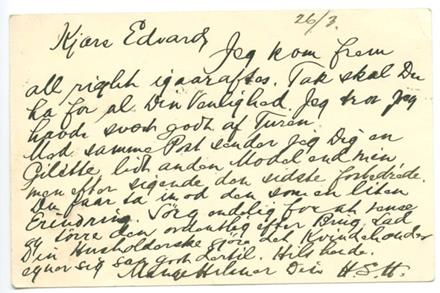 26/3.
Kjære Edvard,
Jeg kom frem
all right igaaraftes. Tak skal Du
ha for al Din Venlighed. Jeg tror jeg
havde svært godt af Turen.
Med samme Post sender Jeg Dig en
Gilette, lidt anden Model end min,
men efter sigende den sidste forbedrede.
Du faar ta imod den som en liten
Erindring. Sörg endelig for at rense
og törre den ordentlig efter Brug. Lad
Din Husholderske göre det. Kvindehænder
egner sig saa godt dertil. Hils
Mange Hilsner Din H.S.H.